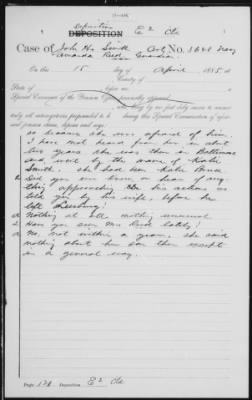 Deposition E2 Cld
DEPOSITION
Case of John H. Smith Act No. 1641 Navy
Amanda Reed Guardian
On this 15 day of April 1885 at
County of
State of before me
Special Examiner of the Pension Office, personally appeared
who, being by me first duly sworn to answer
truly all interrogatories propounded to h during this Special Examination of afore-
said pension claim, deposes and says:
so because she was afraid of him.
I have not heard from her in about
two years She was then in Baltimore
and went by the name of Katie
Smith, she had been Katie Bruce.
Q Did you ever know or hear of any-
thing approaching his actions as
told you by his wife, before he
left
A Nothing at all nothing unusual
Q Have you seen Mrs Reed lately?
A No, not within a year, she said
nothing about her son then except
in a general way.
Page 171 Deposition E2 Cld